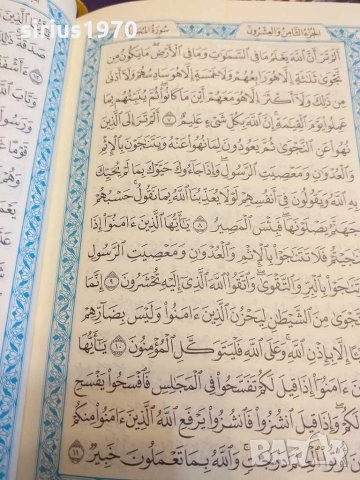 sirius1970
الجُزْءُ الثَّامِنُ وَالعِشْرُونَ
سُورَةُ المُجَ
أَلَمْ تَرَ أَنَّ ٱللَّهَ يَعْلَمُ مَا فِى ٱلسَّمَٰوَٰتِ وَمَا فِى ٱلْأَرْضِۖ مَا يَكُونُ مِن
نَّجْوَىٰ ثَلَٰثَةٍ إِلَّا هُوَ رَابِعُهُمْ وَلَا خَمْسَةٍ إِلَّا هُوَ سَادِسُهُمْ وَلَآ أَدْنَىٰ
مِن ذَٰلِكَ وَلَآ أَكْثَرَ إِلَّا هُوَ مَعَهُمْ أَيْنَ مَا كَانُوا۟ۖ ثُمَّ يُنَبِّئُهُم بِمَا
عَمِلُوا۟ يَوْمَ ٱلْقِيَٰمَةِۚ إِنَّ ٱللَّهَ بِكُلِّ شَىْءٍ عَلِيمٌ ٧ أَلَمْ تَرَ إِلَى ٱلَّذِينَ
نُهُوا۟ عَنِ ٱلنَّجْوَىٰ ثُمَّ يَعُودُونَ لِمَا نُهُوا۟ عَنْهُ وَيَتَنَٰجَوْنَ بِٱلْإِثْمِ
وَٱلْعُدْوَٰنِ وَمَعْصِيَتِ ٱلرَّسُولِۖ وَإِذَا جَآءُوكَ حَيَّوْكَ بِمَا لَمْ يُحَيِّكَ
بِهِ ٱللَّهُ وَيَقُولُونَ فِىٓ أَنفُسِهِمْ لَوْلَا يُعَذِّبُنَا ٱللَّهُ بِمَا نَقُولُۚ حَسْبُهُمْ
جَهَنَّمُ يَصْلَوْنَهَاۖ فَبِئْسَ ٱلْمَصِيرُ ٨ يَٰٓأَيُّهَا ٱلَّذِينَ ءَامَنُوٓا۟ إِذَا
جَيْتُمْ فَلَا تَتَنَٰجَوْا۟ بِٱلْإِثْمِ وَٱلْعُدْوَٰنِ وَمَعْصِيَتِ ٱلرَّسُولِ
جَوْا۟ بِٱلْبِرِّ وَٱلتَّقْوَىٰۖ وَٱتَّقُوا۟ ٱللَّهَ ٱلَّذِىٓ إِلَيْهِ تُحْشَرُونَ ٩ إِنَّمَا
نَّجْوَىٰ مِنَ ٱلشَّيْطَٰنِ لِيَحْزُنَ ٱلَّذِينَ ءَامَنُوا۟ وَلَيْسَ بِضَآرِّهِمْ
ـًٔا إِلَّا بِإِذْنِ ٱللَّهِۚ وَعَلَى ٱللَّهِ فَلْيَتَوَكَّلِ ٱلْمُؤْمِنُونَ ١٠ يَٰٓأَيُّهَا
ءَامَنُوٓا۟ إِذَا قِيلَ لَكُمْ تَفَسَّحُوا۟ فِى ٱلْمَجَٰلِسِ فَٱفْسَحُوا۟ يَفْسَحِ
لَكُمْۖ وَإِذَا قِيلَ ٱنشُزُوا۟ فَٱنشُزُوا۟ يَرْفَعِ ٱللَّهُ ٱلَّذِينَ ءَامَنُوا۟ مِنكُمْ
أُوتُوا۟ ٱلْعِلْمَ دَرَجَٰتٍۚ وَٱللَّهُ بِمَا تَعْمَلُونَ خَبِيرٌ ١١